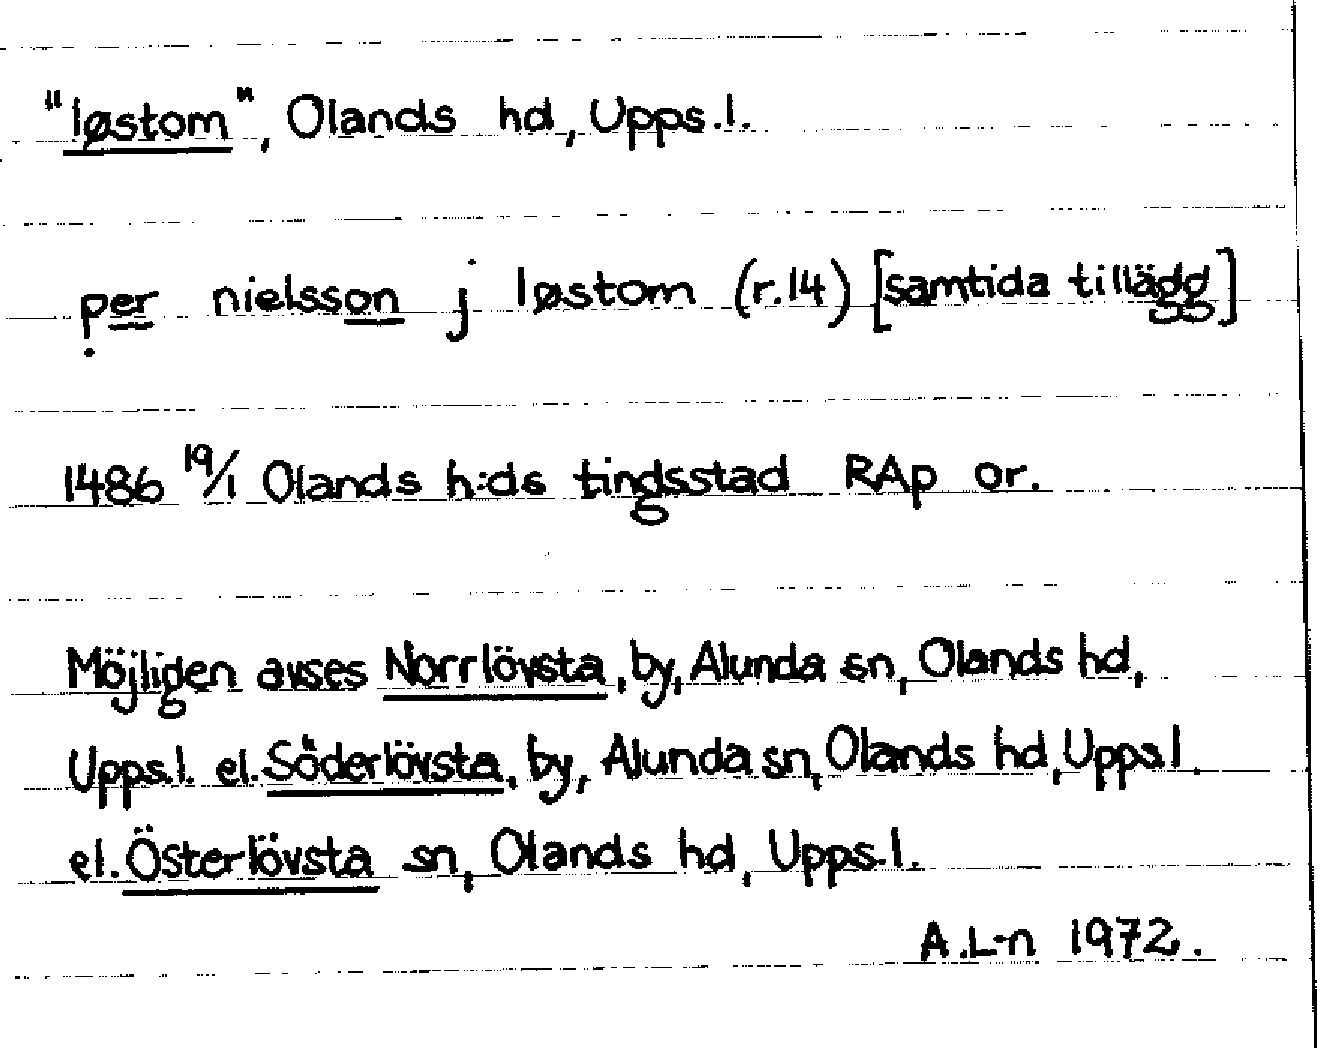 "løstom", Olands hd, Upps.l.
per nielsson j løstom (r.14) [samtida tillägg]
1486 19/1 Olands h:ds tingsstad RAp or.
Möjligen avses Norrlövsta, by, Alunda sn, Olands hd,
Upps.l. el. Söderlövsta, by, Alunda sn, Olands hd, Upps.l.
el. Österlövsta sn, Olands hd, Upps.l.
A.L-n 1972.